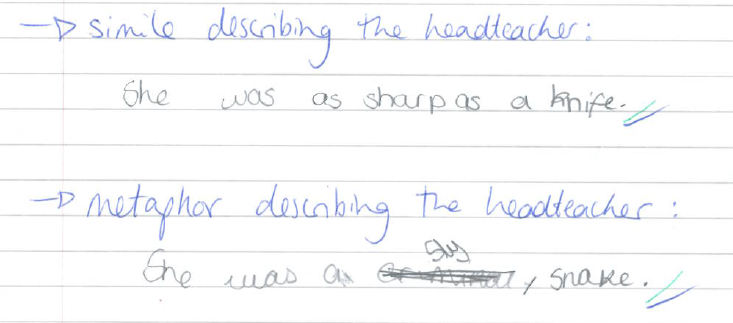 → simile describing the headteacher:
She was as sharp as a knife.
→ metaphor describing the headteacher:
She was a sly, snake.